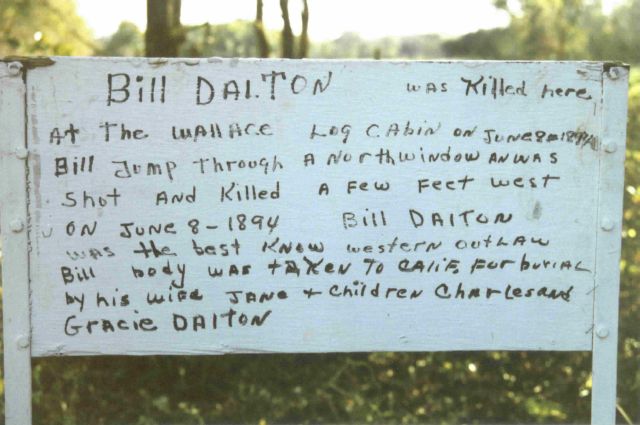 Bill DALTON was Killed here
At The WALLACE Log CAbin on JUNE 8-1894
Bill Jump Through A North window AN WAS
Shot AND Killed A Few Feet West
ON JUNE 8-1894 Bill DALTON
was the best KNOW western outlaw
Bill body was TAKEN TO CALIF. For burial
by his wife JANE + Children Charles and
Gracie DALTON